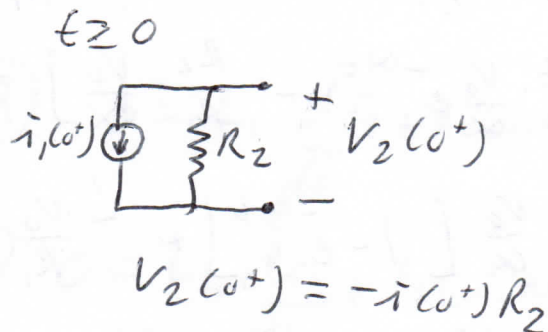 t ≥ 0
i₁(0⁺) R₂ + V₂(0⁺) −
V₂(0⁺) = -i(0⁺) R₂